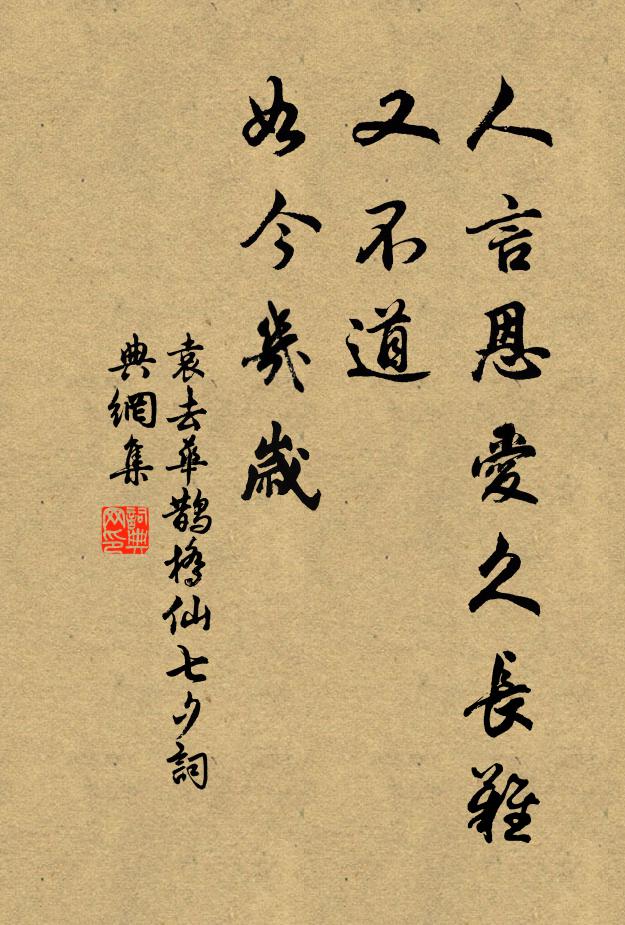 人言恩愛久長難
又不道
如今幾歲
袁去華鵲橋仙七夕詞
典網集
詞典
网印